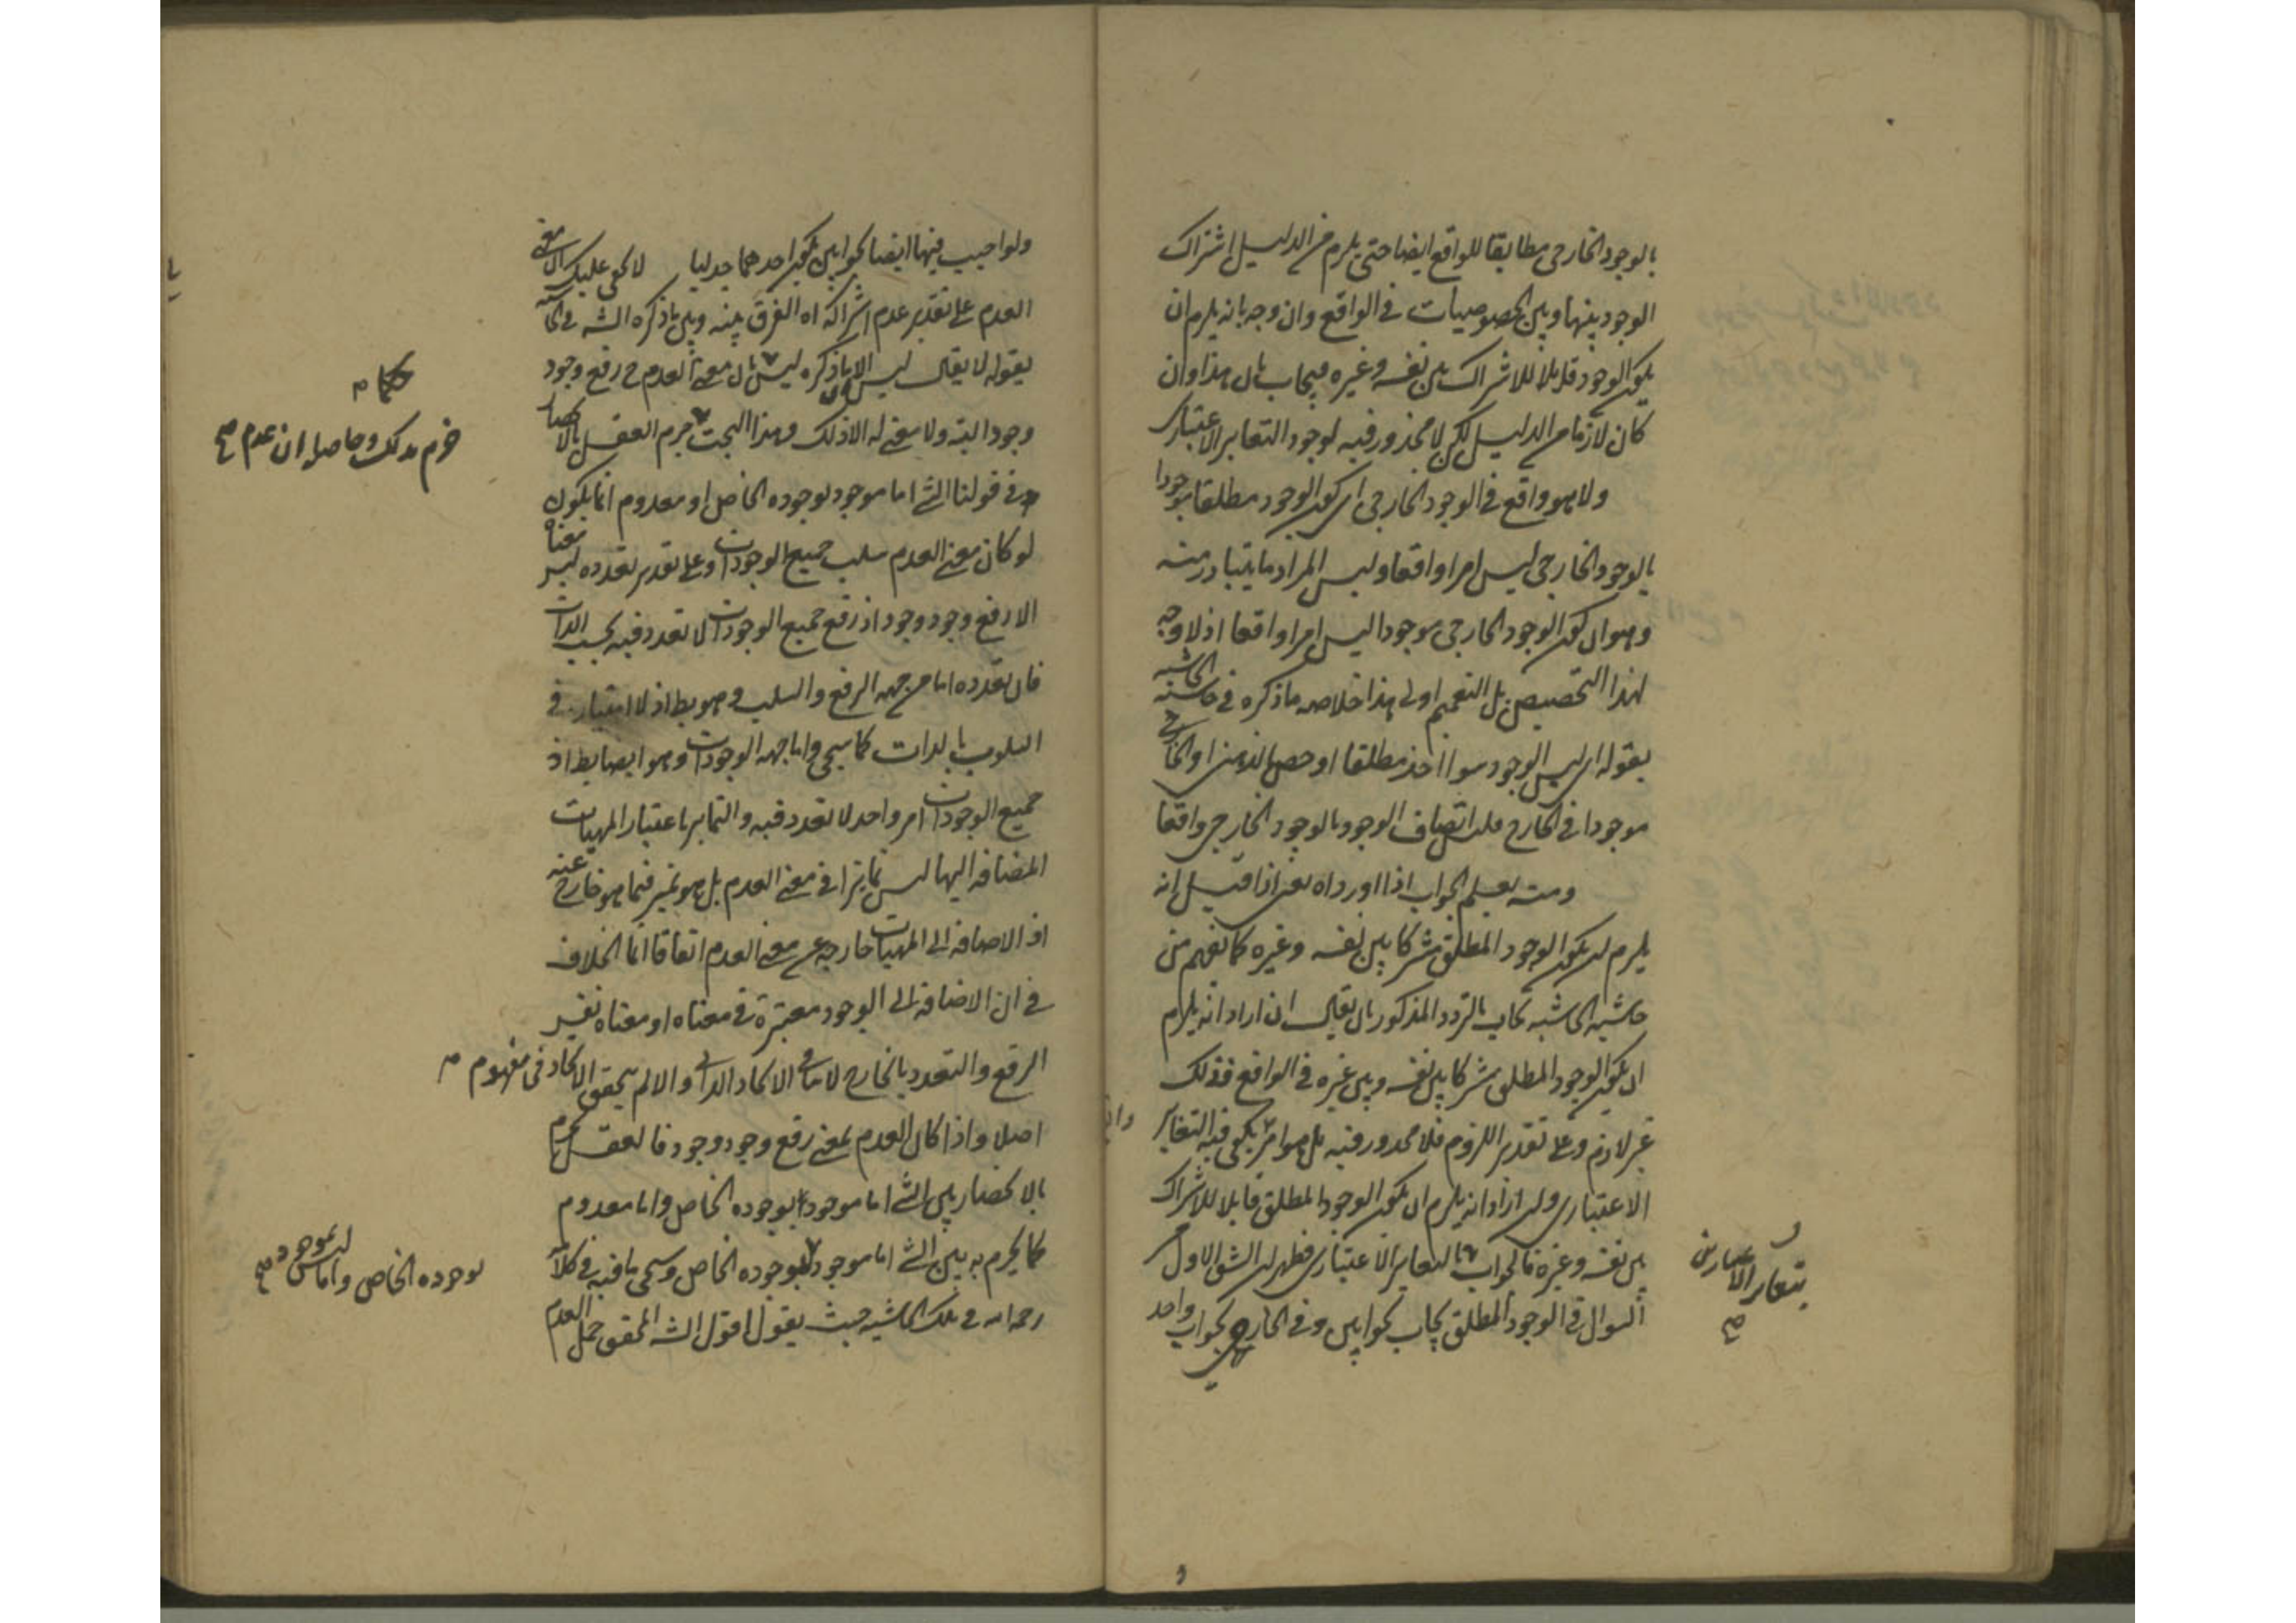 بالوجود الخارجى مطابقا للواقع ايضا حتى يلزم من الدليل اشتراك
الوجود بينها وبين الخصوصيات فى الواقع وان وجه بانه يلزم ان
يكون الوجود قابلا للاشتراك بين نفسه وغيره فيجاب بان هذا وان
كان لازما من الدليل لكن لا محذور فيه لوجود التغاير الاعتبارى
ولا هو واقع فى الوجود الخارجى اى كون الوجود مطلقا موجودا
بالوجود الخارجى ليس امرا واقعا وليس المراد ما يتبادر منه
وهو ان كون الوجود الخارجى موجودا ليس امرا واقعا اذ لا وجه
لهذا التخصيص بل التعميم اولى هذا خلاصه ما ذكره فى حاشية الحاشيه
بقوله اى ليس الوجود سواء اخذ مطلقا او خص بالذهنى او الخارجى
موجودا فى الخارج فليس اتصاف الوجود بالوجود الخارجى واقعا
ومنه يعلم الجواب اذا اورداه يعنى اذا قيل انه
يلزم ان يكون الوجود المطلق مشتركا بين نفسه وغيره كما يفهم من
حاشيه الحاشيه يجاب بالترديد المذكور بان يقال ان اراد انه يلزم
ان يكون الوجود المطلق مشتركا بين نفسه وبين غيره فى الواقع فذلك
غير لازم وعلى تقدير اللزوم فلا محذور فيه بل هو امر يكفى فيه التغاير
الاعتبارى وان اراد انه يلزم ان يكون الوجود المطلق قابلا للاشتراك
بين نفسه وغيره فالجواب بالتغاير الاعتبارى فظهر ان الشق الاول
السوال فى الوجود المطلق يجاب بجوابين وفى الخارجى بجواب واحد
بتغاير الاعتبارى
صح
ولو اجيب فيها ايضا بجوابين يكون احدهما جدليا لا يخفى عليك ان معنى
العدم على تقدير عدم اشتراكه اه الفرق بينه وبين ما ذكره الشه فى الحاشيه
بقوله لا يقال ليس الا ما ذكره ليس بان معنى العدم ح رفع وجود
وجود البته ولا معنى له الا ذلك وهذا البحث جزم العقل بالانحصار
فى قولنا الشئ اما موجود بوجوده الخاص او معدوم انما يكون
لو كان معنى العدم سلب جميع الوجودات وعلى تقدير تعدده ليس معناه
الا رفع وجود وجود اذ رفع جميع الوجودات لا تعدد فيه بحسب الذات
فان تعدده اما من جهه الرفع والسلب وهو بط اذ لا امتياز فى
السلوب بالذات كما سيجى واما جهه الوجودات وهو ايضا بط اذ
جميع الوجودات امر واحد لا تعدد فيه والتمايز باعتبار المهيات
المضافه اليها ليس تمايزا فى معنى العدم بل هو تميز فيما هو خارج عنه
اذ الاضافه الى المهيات خارجه عن معنى العدم اتفاقا انما الخلاف
فى ان الاضافه الى الوجود معتبرة فى معناه او معناه نفس
الرفع والتعدد بالخارج لا ينافى الاتحاد الذاتى والا لم يتحقق الاتحاد فى مفهوم
اصلا واذا كان العدم بمعنى رفع وجود وجود فالعقل يجزم
بالانحصار بين الشئ اما موجود بوجوده الخاص واما معدوم
كما يجزم به بين الشئ اما موجود بوجوده الخاص وسيجى ما فيه فى كلامه
رحمه الله فى تلك الحاشيه حيث يقول اقول الشه المحقق حمل العدم
وحاصله ان عدم صح
بوجوده الخاص واما ليس بموجود صح